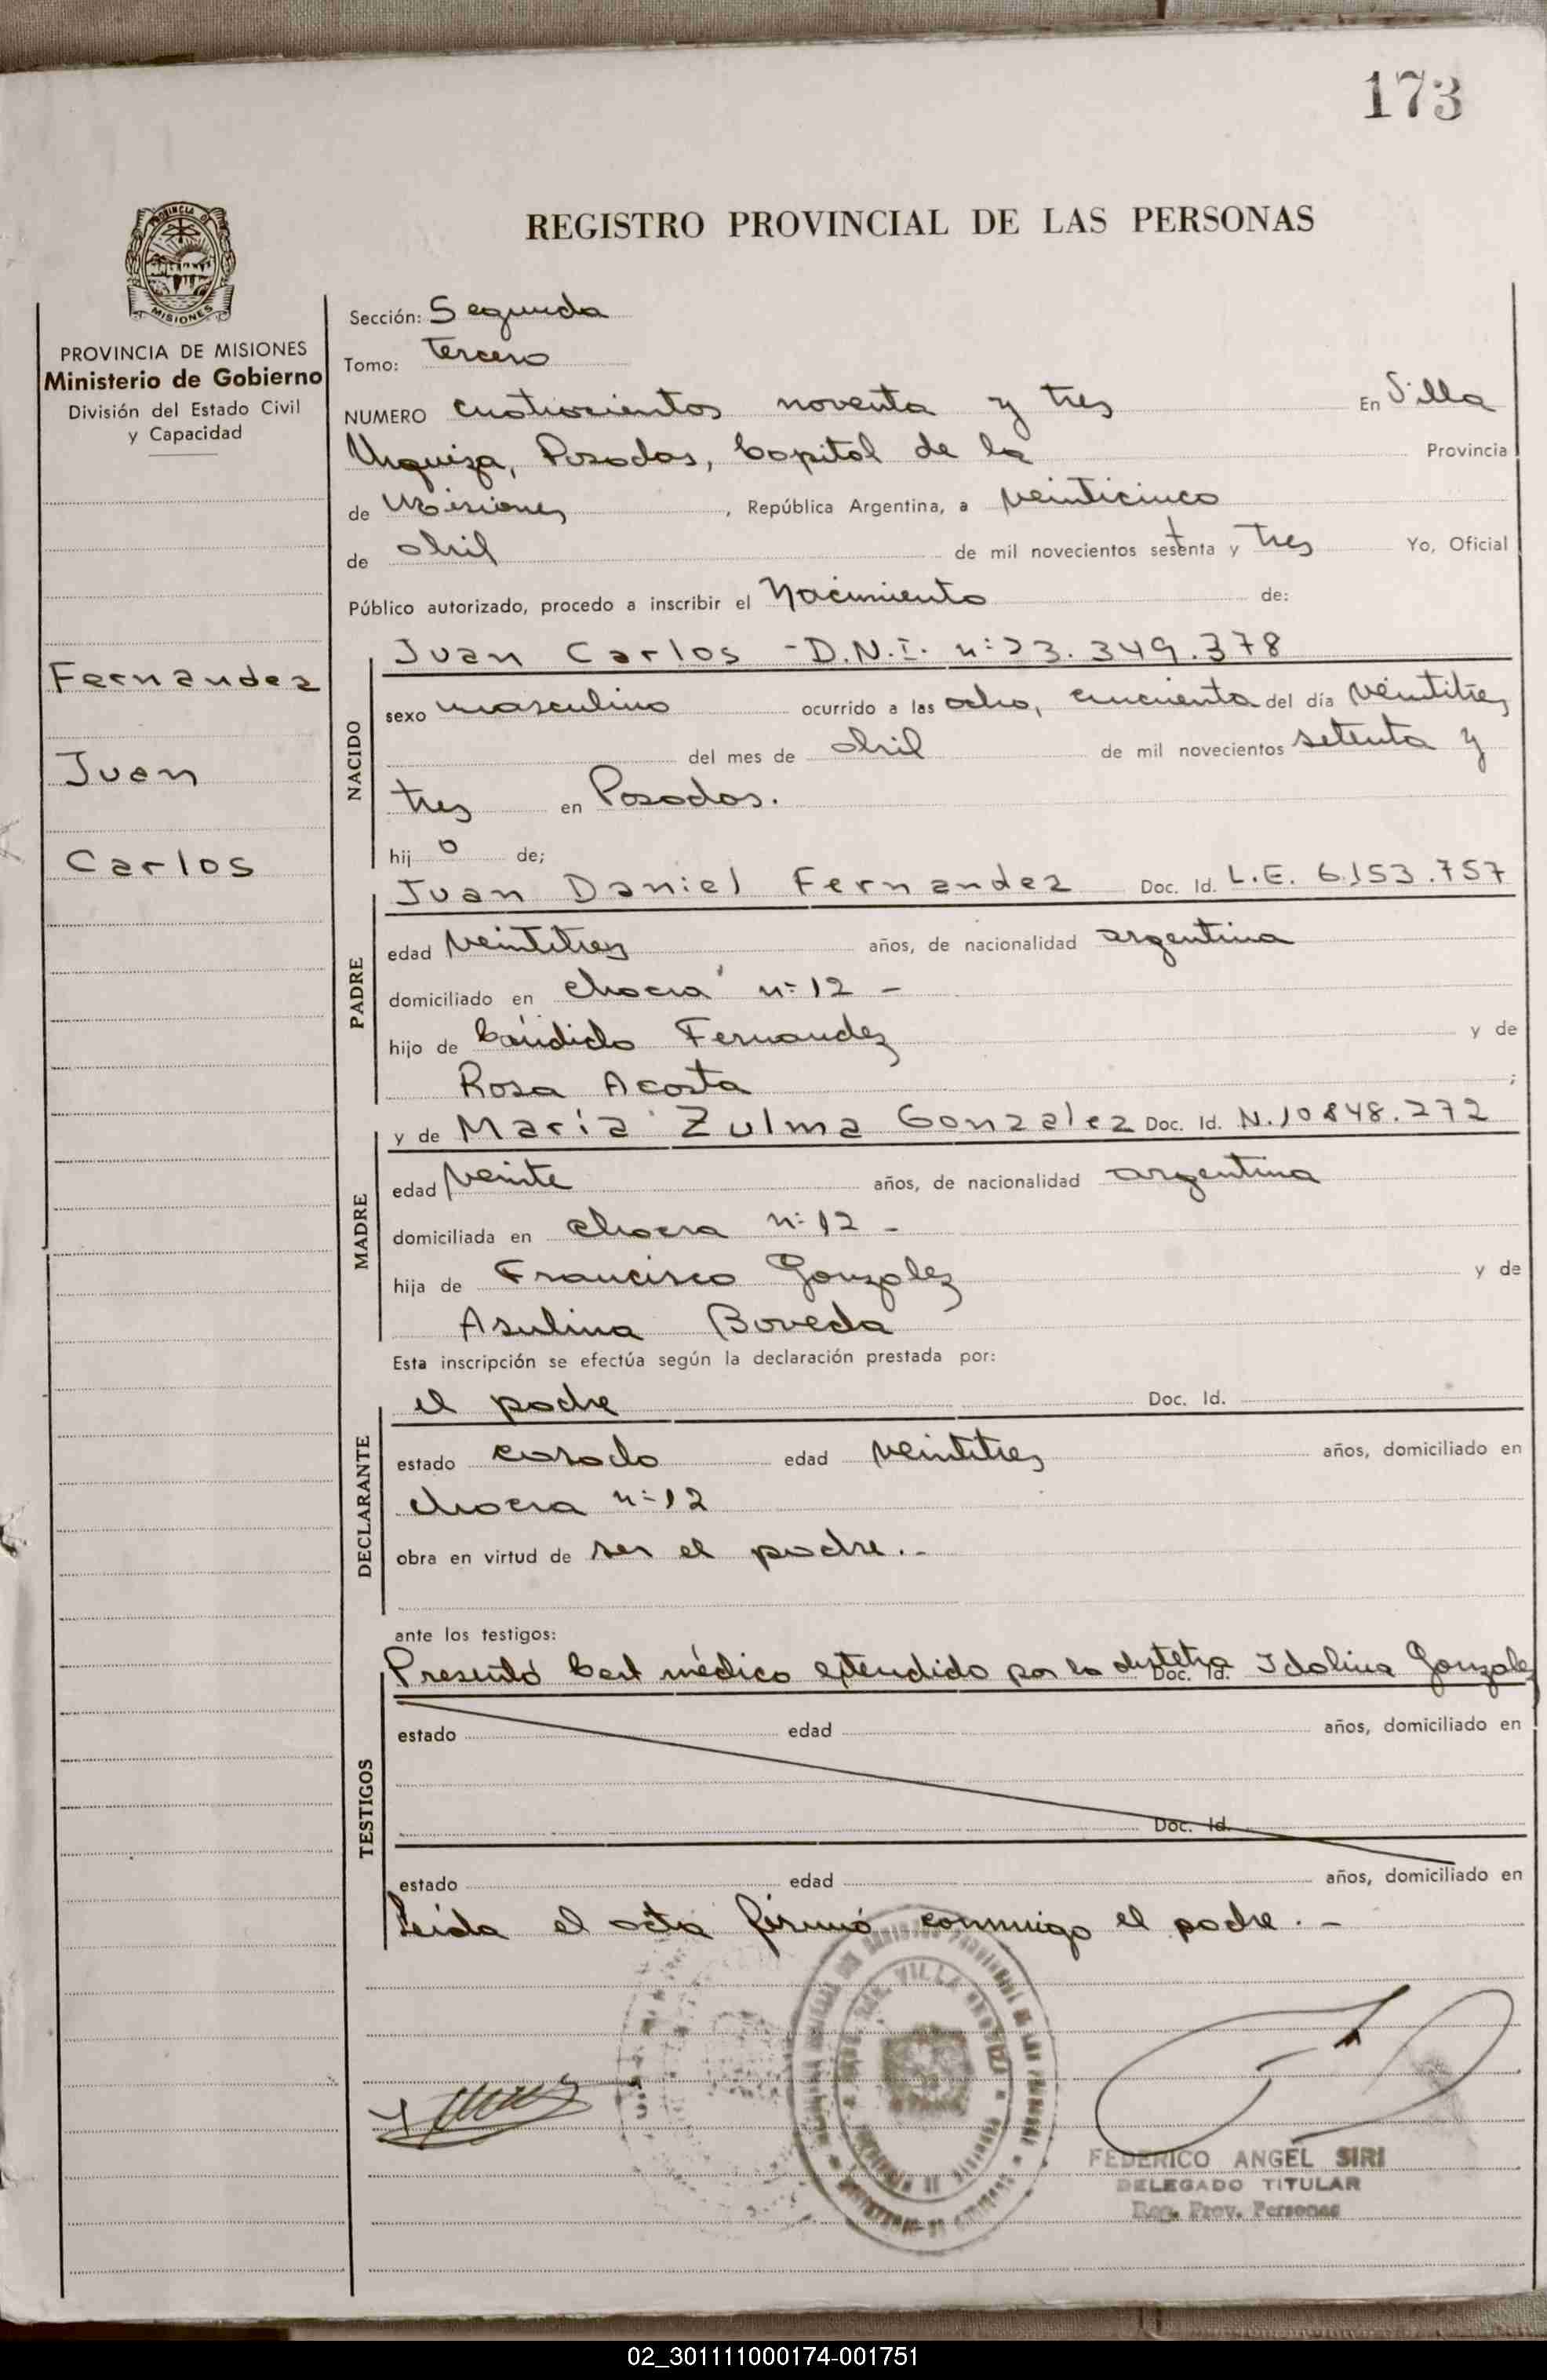 173
REGISTRO PROVINCIAL DE LAS PERSONAS
PROVINCIA DE MISIONES
Ministerio de Gobierno
División del Estado Civil
y Capacidad
Fernandez
Juan
Carlos
Sección: Segunda
Tomo: Tercero
NUMERO cuatrocientos noventa y tres En Villa
Urquiza, Posadas, Capital de la Provincia
de Misiones, República Argentina, a veinticinco
de abril de mil novecientos sesenta y tres Yo, Oficial
Público autorizado, procedo a inscribir el Nacimiento de:
NACIDO
Juan Carlos - D.N.I. n: 23.349.378
sexo masculino ocurrido a las ocho, cincuenta del día veintitres
del mes de abril de mil novecientos setenta y
tres en Posadas.
hij o de;
PADRE
Juan Daniel Fernandez Doc. Id. L.E. 6.153.757
edad veintitres años, de nacionalidad argentina
domiciliado en chacra n: 12 -
hijo de Cándido Fernandez y de
Rosa Acosta ;
MADRE
y de María Zulma Gonzalez Doc. Id. N. 10848.272
edad veinte años, de nacionalidad argentina
domiciliada en chacra n: 12 -
hija de Francisco Gonzalez y de
Asulina Boveda
Esta inscripción se efectúa según la declaración prestada por:
DECLARANTE
el padre Doc. Id.
estado casado edad veintitres años, domiciliado en
chacra n: 12
obra en virtud de ser el padre. -
ante los testigos:
TESTIGOS
Presentó Cert médico extendido por la obstetra Idolina Gonzalez
Doc. Id.
estado edad años, domiciliado en
Doc. Id.
estado edad años, domiciliado en
Leída el acta firmó conmigo el padre. -
VILLA URQUIZA
FEDERICO ANGEL SIRI
DELEGADO TITULAR
Reg. Prov. Personas
02_301111000174-001751